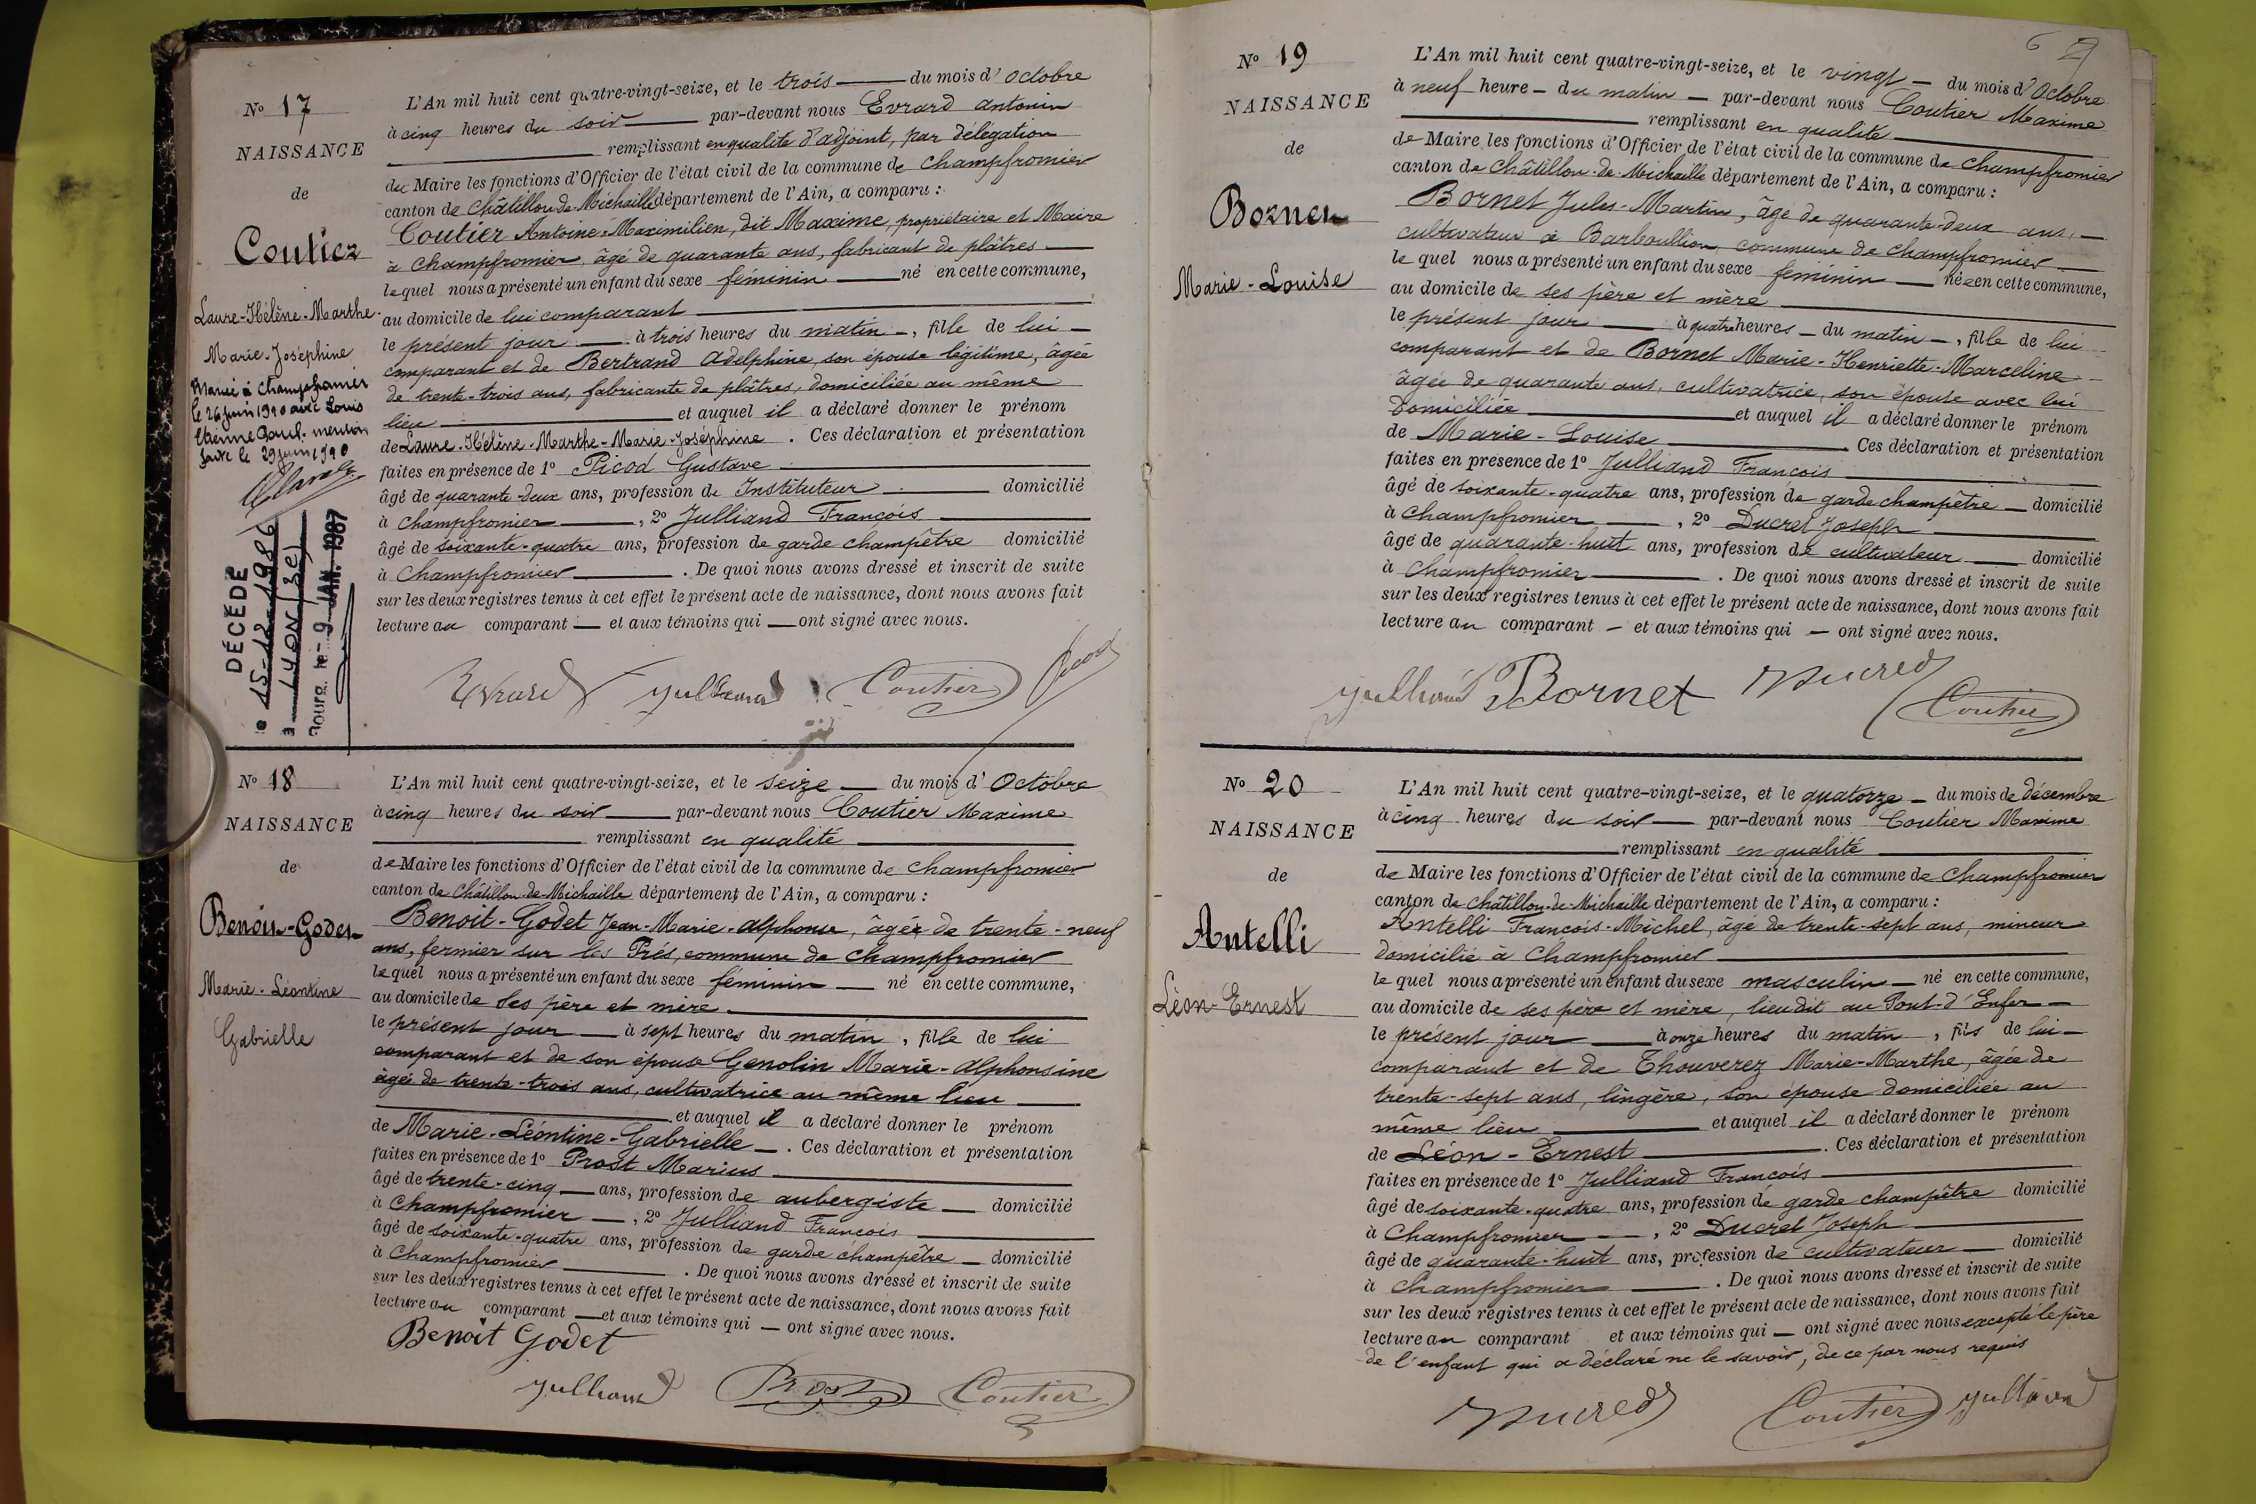 Nº 17
NAISSANCE
de
Coutier
Laure-Hélène-Marthe-
Marie-Joséphine
Mariée à Champfromier
le 26 juin 1920 avec Louis
Etienne mention
faite le 29 juin 1920
DÉCÉDÉ
le 15-12-1986
à LYON (3e)
le - 9 JAN. 1987
L'An mil huit cent quatre-vingt-seize, et le trois du mois d'Octobre
à cinq heures du soir par-devant nous Evrard Antonin
remplissant en qualité d'adjoint, par délégation
du Maire les fonctions d'Officier de l'état civil de la commune de Champfromier
canton de Châtillon de Michaille département de l'Ain, a comparu :
Coutier Antoine-Maximilien, dit Maxime, propriétaire et Maire
à Champfromier, âgé de quarante ans, fabricant de plâtres
lequel nous a présenté un enfant du sexe féminin né en cette commune,
au domicile de lui comparant
le présent jour à trois heures du matin, fille de lui
comparant et de Bertrand Adelphine, son épouse légitime, âgée
de trente-trois ans, fabricante de plâtres, domiciliée au même
lieu et auquel il a déclaré donner le prénom
de Laure-Hélène-Marthe-Marie-Joséphine. Ces déclaration et présentation
faites en présence de 1º Picod Gustave
âgé de quarante-deux ans, profession de Instituteur domicilié
à Champfromier, 2º Julliand François
âgé de soixante-quatre ans, profession de garde champêtre domicilié
à Champfromier. De quoi nous avons dressé et inscrit de suite
sur les deux registres tenus à cet effet le présent acte de naissance, dont nous avons fait
lecture au comparant et aux témoins qui ont signé avec nous.
Evrard Julliand Coutier Picod
Nº 18
NAISSANCE
de
Benoit-Godet
Marie-Léontine
Gabrielle
L'An mil huit cent quatre-vingt-seize, et le seize du mois d'Octobre
à cinq heures du soir par-devant nous Coutier Maxime
remplissant en qualité
de Maire les fonctions d'Officier de l'état civil de la commune de Champfromier
canton de Châtillon-de-Michaille département de l'Ain, a comparu :
Benoit-Godet Jean-Marie-Alphonse, âgé de trente-neuf
ans, fermier sur les Prés, commune de Champfromier
lequel nous a présenté un enfant du sexe féminin né en cette commune,
au domicile de ses père et mère
le présent jour à sept heures du matin, fille de lui
comparant et de son épouse Genolin Marie-Alphonsine
âgée de trente-trois ans, cultivatrice au même lieu
et auquel il a déclaré donner le prénom
de Marie-Léontine-Gabrielle. Ces déclaration et présentation
faites en présence de 1º Prost Marius
âgé de trente-cinq ans, profession de aubergiste domicilié
à Champfromier, 2º Julliand François
âgé de soixante-quatre ans, profession de garde champêtre domicilié
à Champfromier. De quoi nous avons dressé et inscrit de suite
sur les deux registres tenus à cet effet le présent acte de naissance, dont nous avons fait
lecture au comparant et aux témoins qui ont signé avec nous.
Benoit Godet
Julliand Prost Coutier
6
Nº 19
NAISSANCE
de
Bornet
Marie-Louise
L'An mil huit cent quatre-vingt-seize, et le vingt du mois d'Octobre
à neuf heure du matin par-devant nous Coutier Maxime
remplissant en qualité
de Maire les fonctions d'Officier de l'état civil de la commune de Champfromier
canton de Châtillon-de-Michaille département de l'Ain, a comparu :
Bornet Jules-Martin, âgé de quarante-deux ans,
cultivateur à Barboullion, commune de Champfromier
lequel nous a présenté un enfant du sexe féminin née en cette commune,
au domicile de ses père et mère
le présent jour à quatre heures du matin, fille de lui
comparant et de Bornet Marie-Henriette-Marceline
âgée de quarante ans, cultivatrice, son épouse avec lui
domiciliée et auquel il a déclaré donner le prénom
de Marie-Louise Ces déclaration et présentation
faites en présence de 1º Julliand François
âgé de soixante-quatre ans, profession de garde champêtre domicilié
à Champfromier, 2º Ducret Joseph
âgé de quarante-huit ans, profession de cultivateur domicilié
à Champfromier. De quoi nous avons dressé et inscrit de suite
sur les deux registres tenus à cet effet le présent acte de naissance, dont nous avons fait
lecture au comparant et aux témoins qui ont signé avec nous.
Julliand Bornet Ducret
Coutier
Nº 20
NAISSANCE
de
Antelli
Léon-Ernest
L'An mil huit cent quatre-vingt-seize, et le quatorze du mois de décembre
à cinq heures du soir par-devant nous Coutier Maxime
remplissant en qualité
de Maire les fonctions d'Officier de l'état civil de la commune de Champfromier
canton de Châtillon-de-Michaille département de l'Ain, a comparu :
Antelli François-Michel, âgé de trente-sept ans, mineur
domicilié à Champfromier
lequel nous a présenté un enfant du sexe masculin né en cette commune,
au domicile de ses père et mère, lieu dit au Pont-d'Enfer
le présent jour à onze heures du matin, fils de lui
comparant et de Thouverez Marie-Marthe, âgée de
trente-sept ans, lingère, son épouse domiciliée au
même lieu et auquel il a déclaré donner le prénom
de Léon-Ernest. Ces déclaration et présentation
faites en présence de 1º Julliand François
âgé de soixante-quatre ans, profession de garde champêtre domicilié
à Champfromier, 2º Ducret Joseph
âgé de quarante-huit ans, profession de cultivateur domicilié
à Champfromier. De quoi nous avons dressé et inscrit de suite
sur les deux registres tenus à cet effet le présent acte de naissance, dont nous avons fait
lecture au comparant et aux témoins qui ont signé avec nous excepté le père
de l'enfant qui a déclaré ne le savoir, de ce par nous requis
Ducret Coutier Julliand